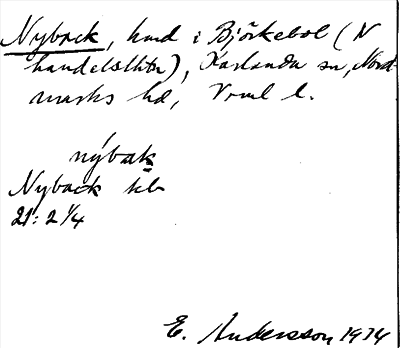 Nyback, hmd i Björkebol (N
handelslhtn), Karlanda sn, Nord-
marks hd, Vrml l.
nýbak
Nyback kb
21: 2 1/4
E. Andersson 1914